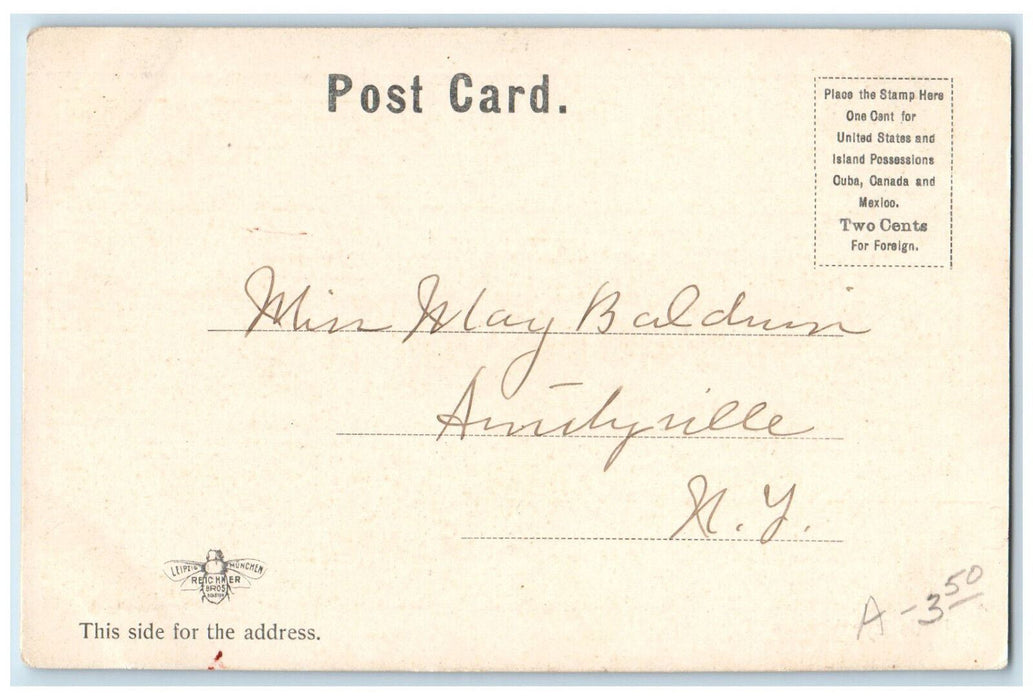 Post Card.
Place the Stamp Here
One Cent for
United States and
Island Possessions
Cuba, Canada and
Mexico.
Two Cents
For Foreign.
Miss May Baldwin
Amityville
N. Y.
LEIPZIG MÜNCHEN
REICHNER
BROS
BOSTON
This side for the address.
A - 3 50